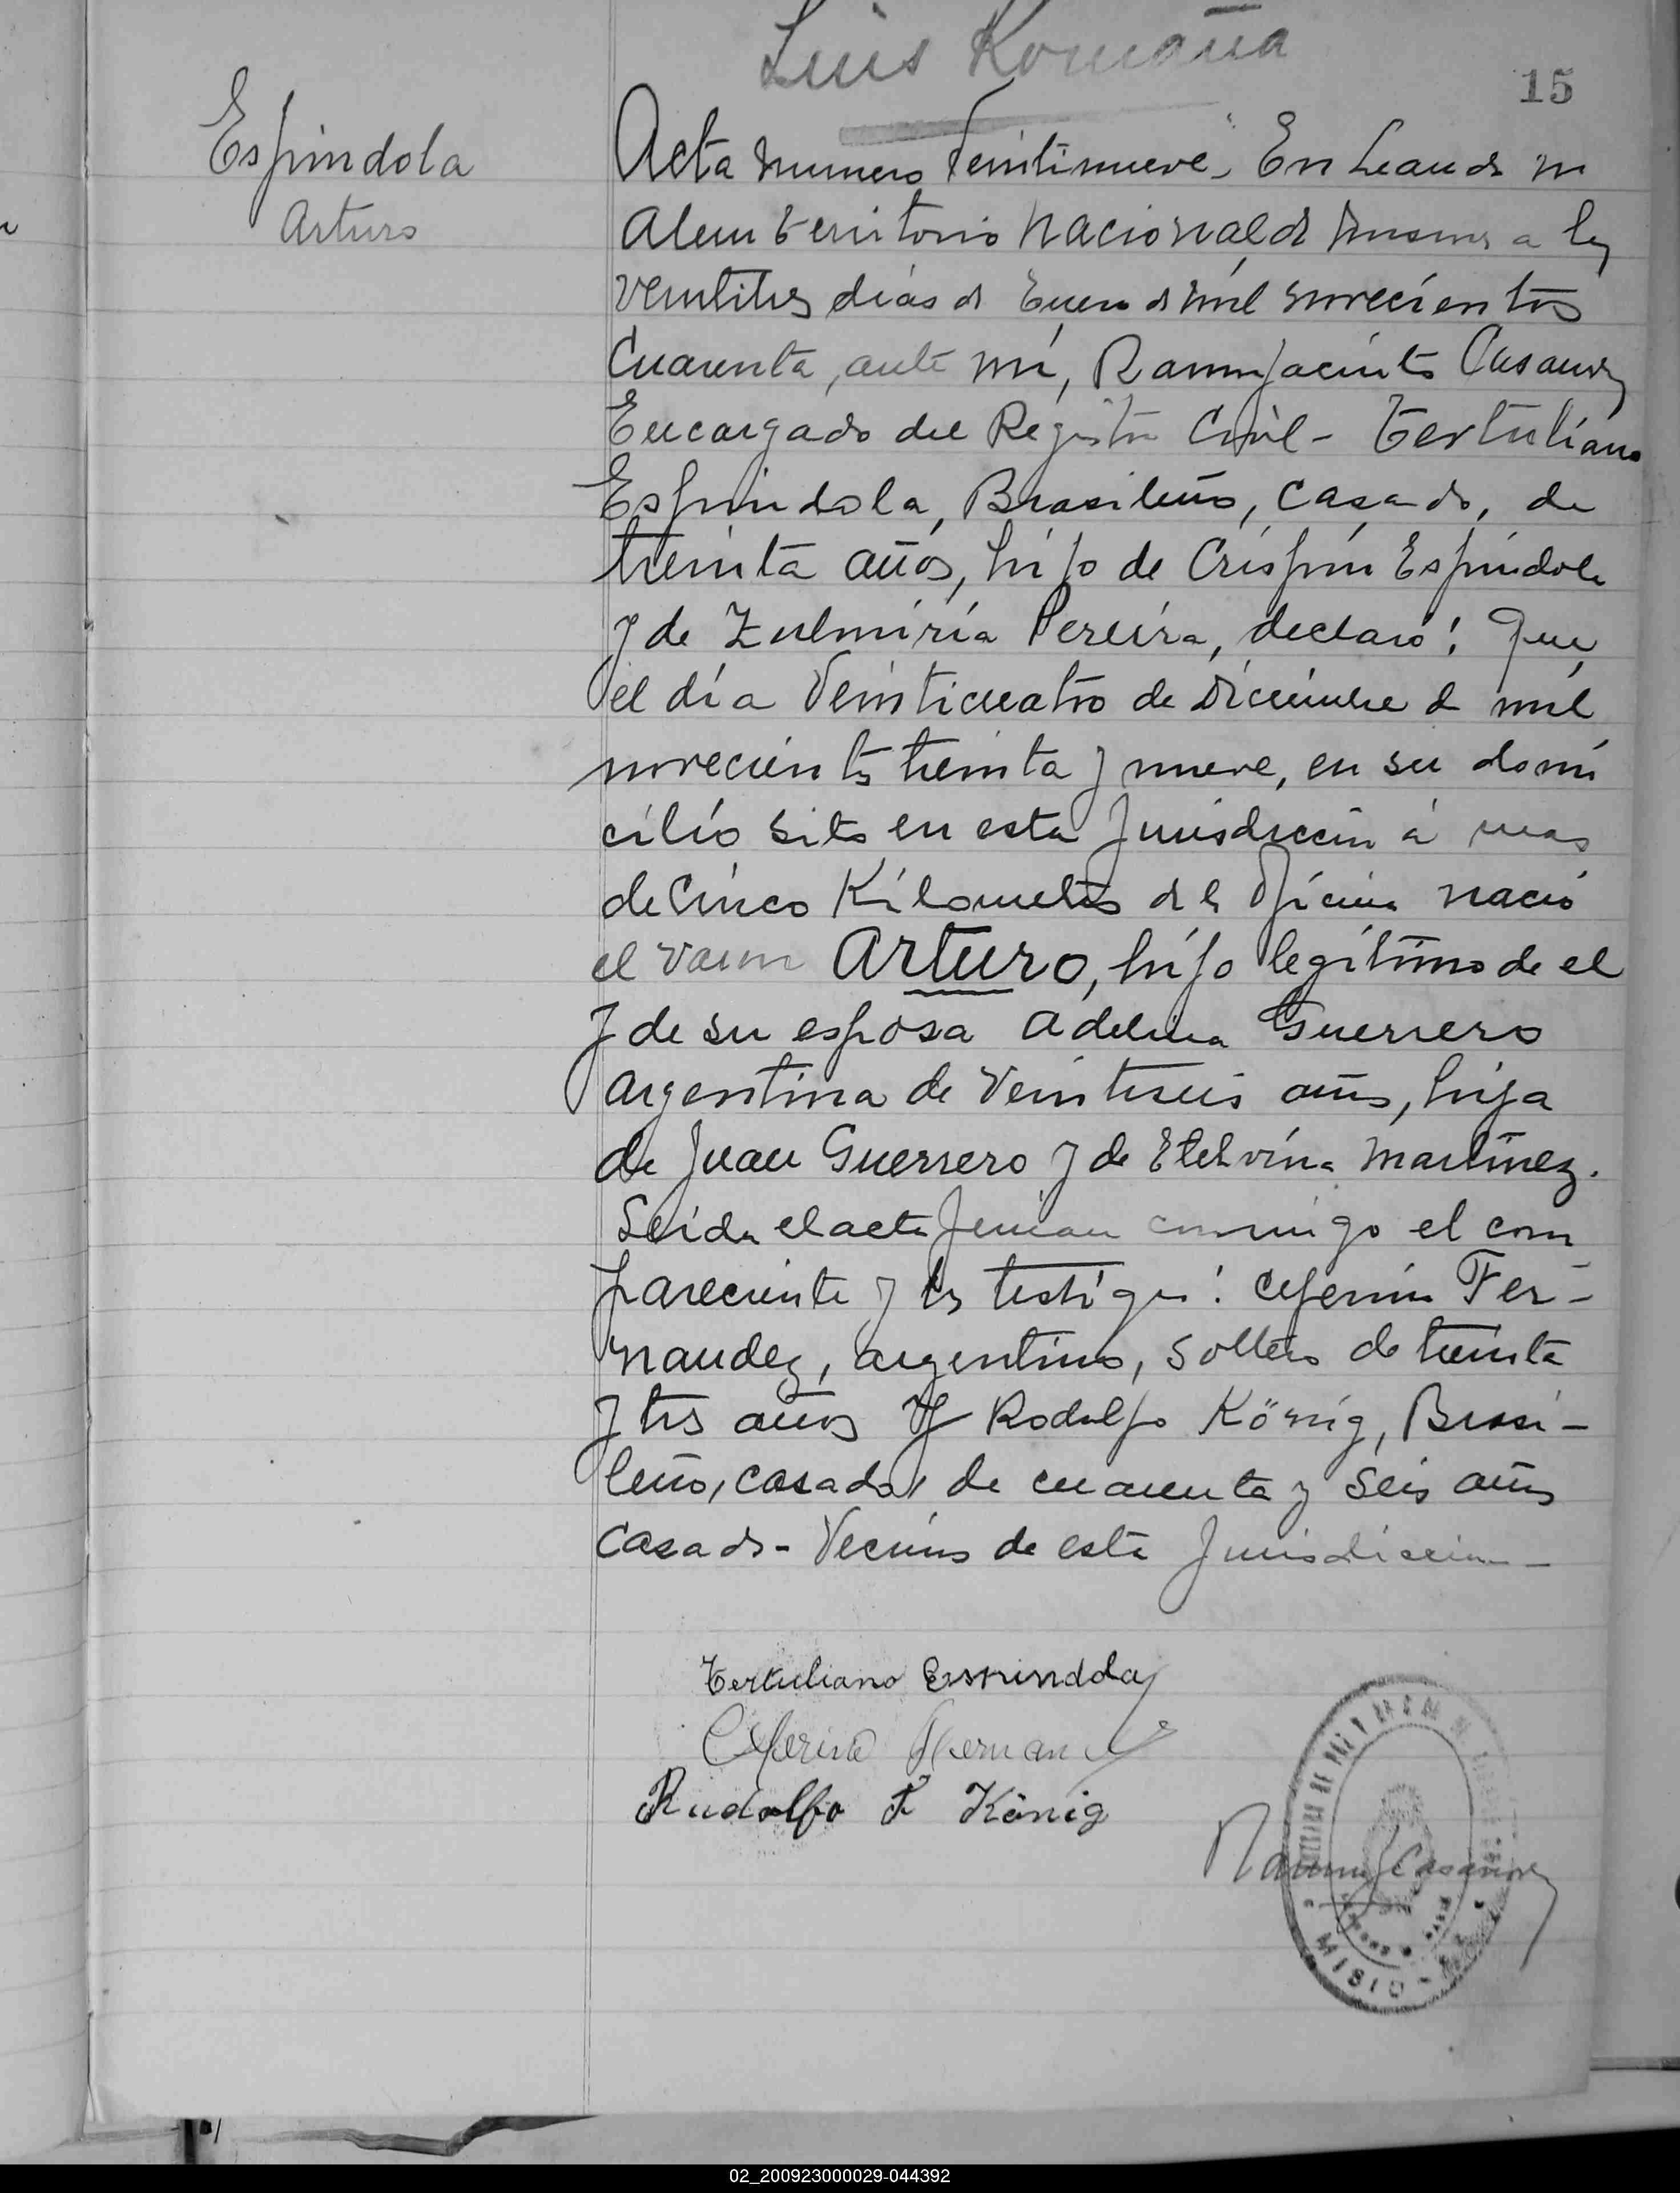 Luis Romaña
15
Espindola
Arturo
Acta numero Veintinueve. En Leandro N
Alem territorio Nacional de Misiones a los
veintitres dias de Enero de mil novecientos
Cuarenta, ante mi, Ramon Jacinto Casanova
Encargado del Registro Civil - Tertuliano
Espindola, Brasileño, Casado, de
treinta años, hijo de Crispín Espindola
y de Zulmiria Pereira, declaró: Que
el día Veinticuatro de Diciembre de mil
novecientos treinta y nueve, en su domi
cilio sito en esta Jurisdiccion á mas
de Cinco Kilometros de la Oficina nació
el varon Arturo, hijo legítimo de el
y de su esposa Adelina Guerrero
argentina de Veintiseis años, hija
de Juan Guerrero y de Etelvina Martinez.
Leida el acta firman conmigo el com
pareciente y los testigos: Ceferino Fer-
nandez, argentino, soltero de treinta
y tres años y Rodolfo König, Brasi-
leño, casado, de cuarenta y seis años
casado - Vecinos de esta Jurisdiccion -
Tertuliano Espindola
Ceferino Fernandez
Rudolfo F König
Ramon J Casanova
MISIO
02_200923000029-044392